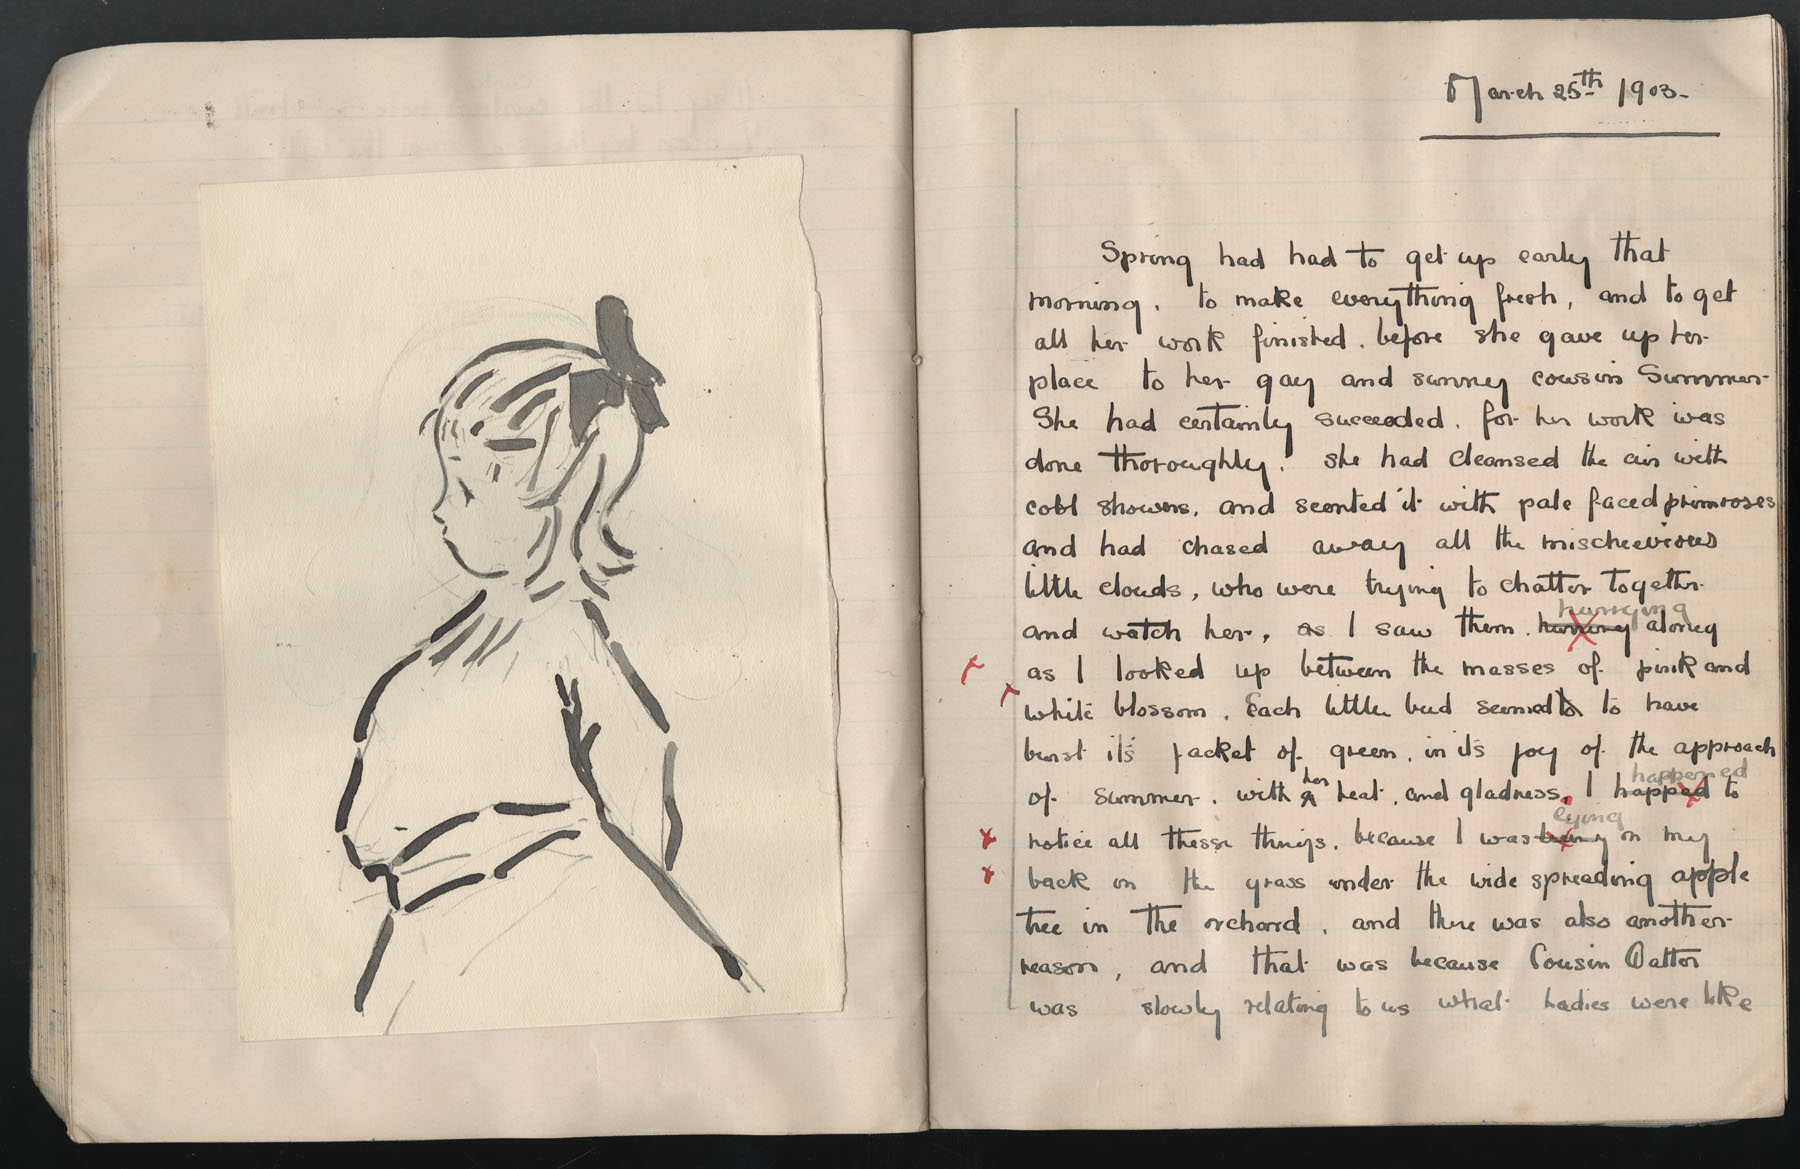 March 25th 1903.
Spring had had to get up early that
morning, to make everything fresh, and to get
all her work finished, before she gave up her
place to her gay and sunney cousin Summer
She had certainly succeeded, for her work was
done thoroughly. She had cleansed the air with
cool showers, and scented it with pale faced primroses
and had chased away all the mischeevious
little clouds, who were trying to chatter together
hurrying
and watch her, as I saw them along
as I looked up between the masses of pink and
white blossom. Each little bud seemed to have
burst it's jacket of green, in it's joy of the approach
happened
of summer, with her heat, and gladness, I happed to
lying
notice all these things, because I was on my
back in the grass under the wide spreading apple
tree in the orchard, and there was also another
reason, and that was because Cousin
was slowly relating to us what ladies were like